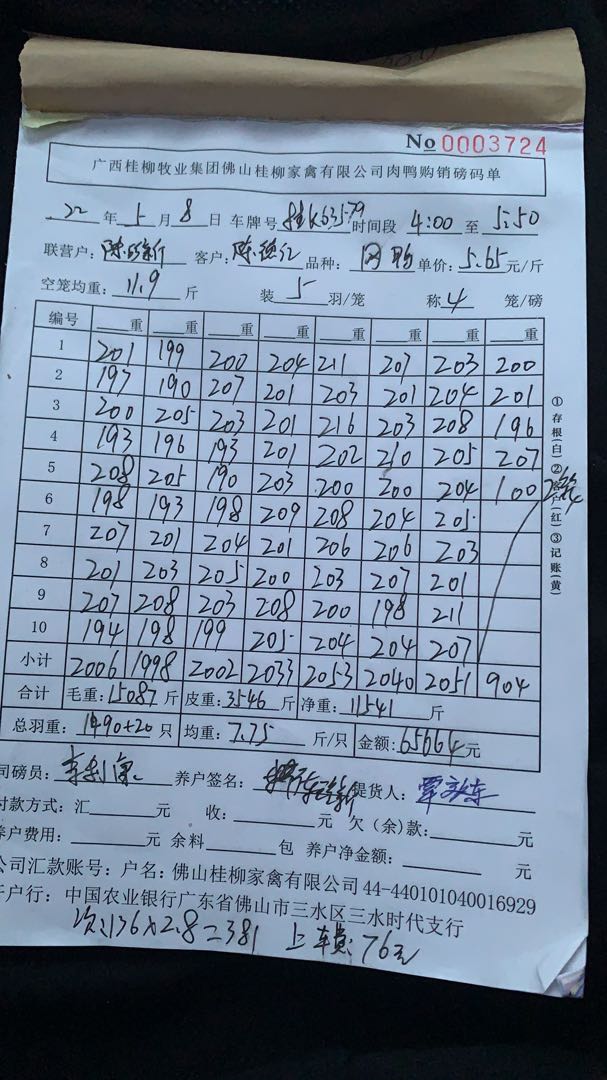 No 0003724
广西桂柳牧业集团佛山桂柳家禽有限公司肉鸭购销磅码单
22 年 5 月 8 日 车牌号 桂K63579 时间段 4:00 至 5:50
联营户: 客户: 陈德仁 品种: 单价: 5.65 元/斤
空笼均重: 11.9 斤 装 5 羽/笼 称 4 笼/磅
编号 重 重 重 重 重 重 重 重
1 201 199 200 204 211 207 203 200
2 197 190 207 201 203 201 204 201
3 200 205 203 201 216 203 208 196
4 193 196 193 201 202 210 205 207
5 208 205 190 203 200 200 204 100
6 198 193 198 209 208 204 205
7 207 201 204 201 206 206 203
8 201 203 205 200 203 207 201
9 207 208 203 208 200 198 211
10 194 198 199 205 204 204 207
小计 2006 1998 2002 2033 2053 2040 2051 904
合计 毛重: 15087 斤 皮重: 3546 斤 净重: 11541 斤
总羽重: 1490+20 只 均重: 7.75 斤/只 金额: 65664 元
司磅员: 养户签名: 提货人:
付款方式: 汇 元 收: 元 欠(余)款: 元
养户费用: 元 余料 包 养户净金额: 元
公司汇款账号: 户名: 佛山桂柳家禽有限公司 44-440101040016929
开户行: 中国农业银行广东省佛山市三水区三水时代支行
次:136×2.8=381 上车费:76元
①存根(白)②(红)③记账(黄)